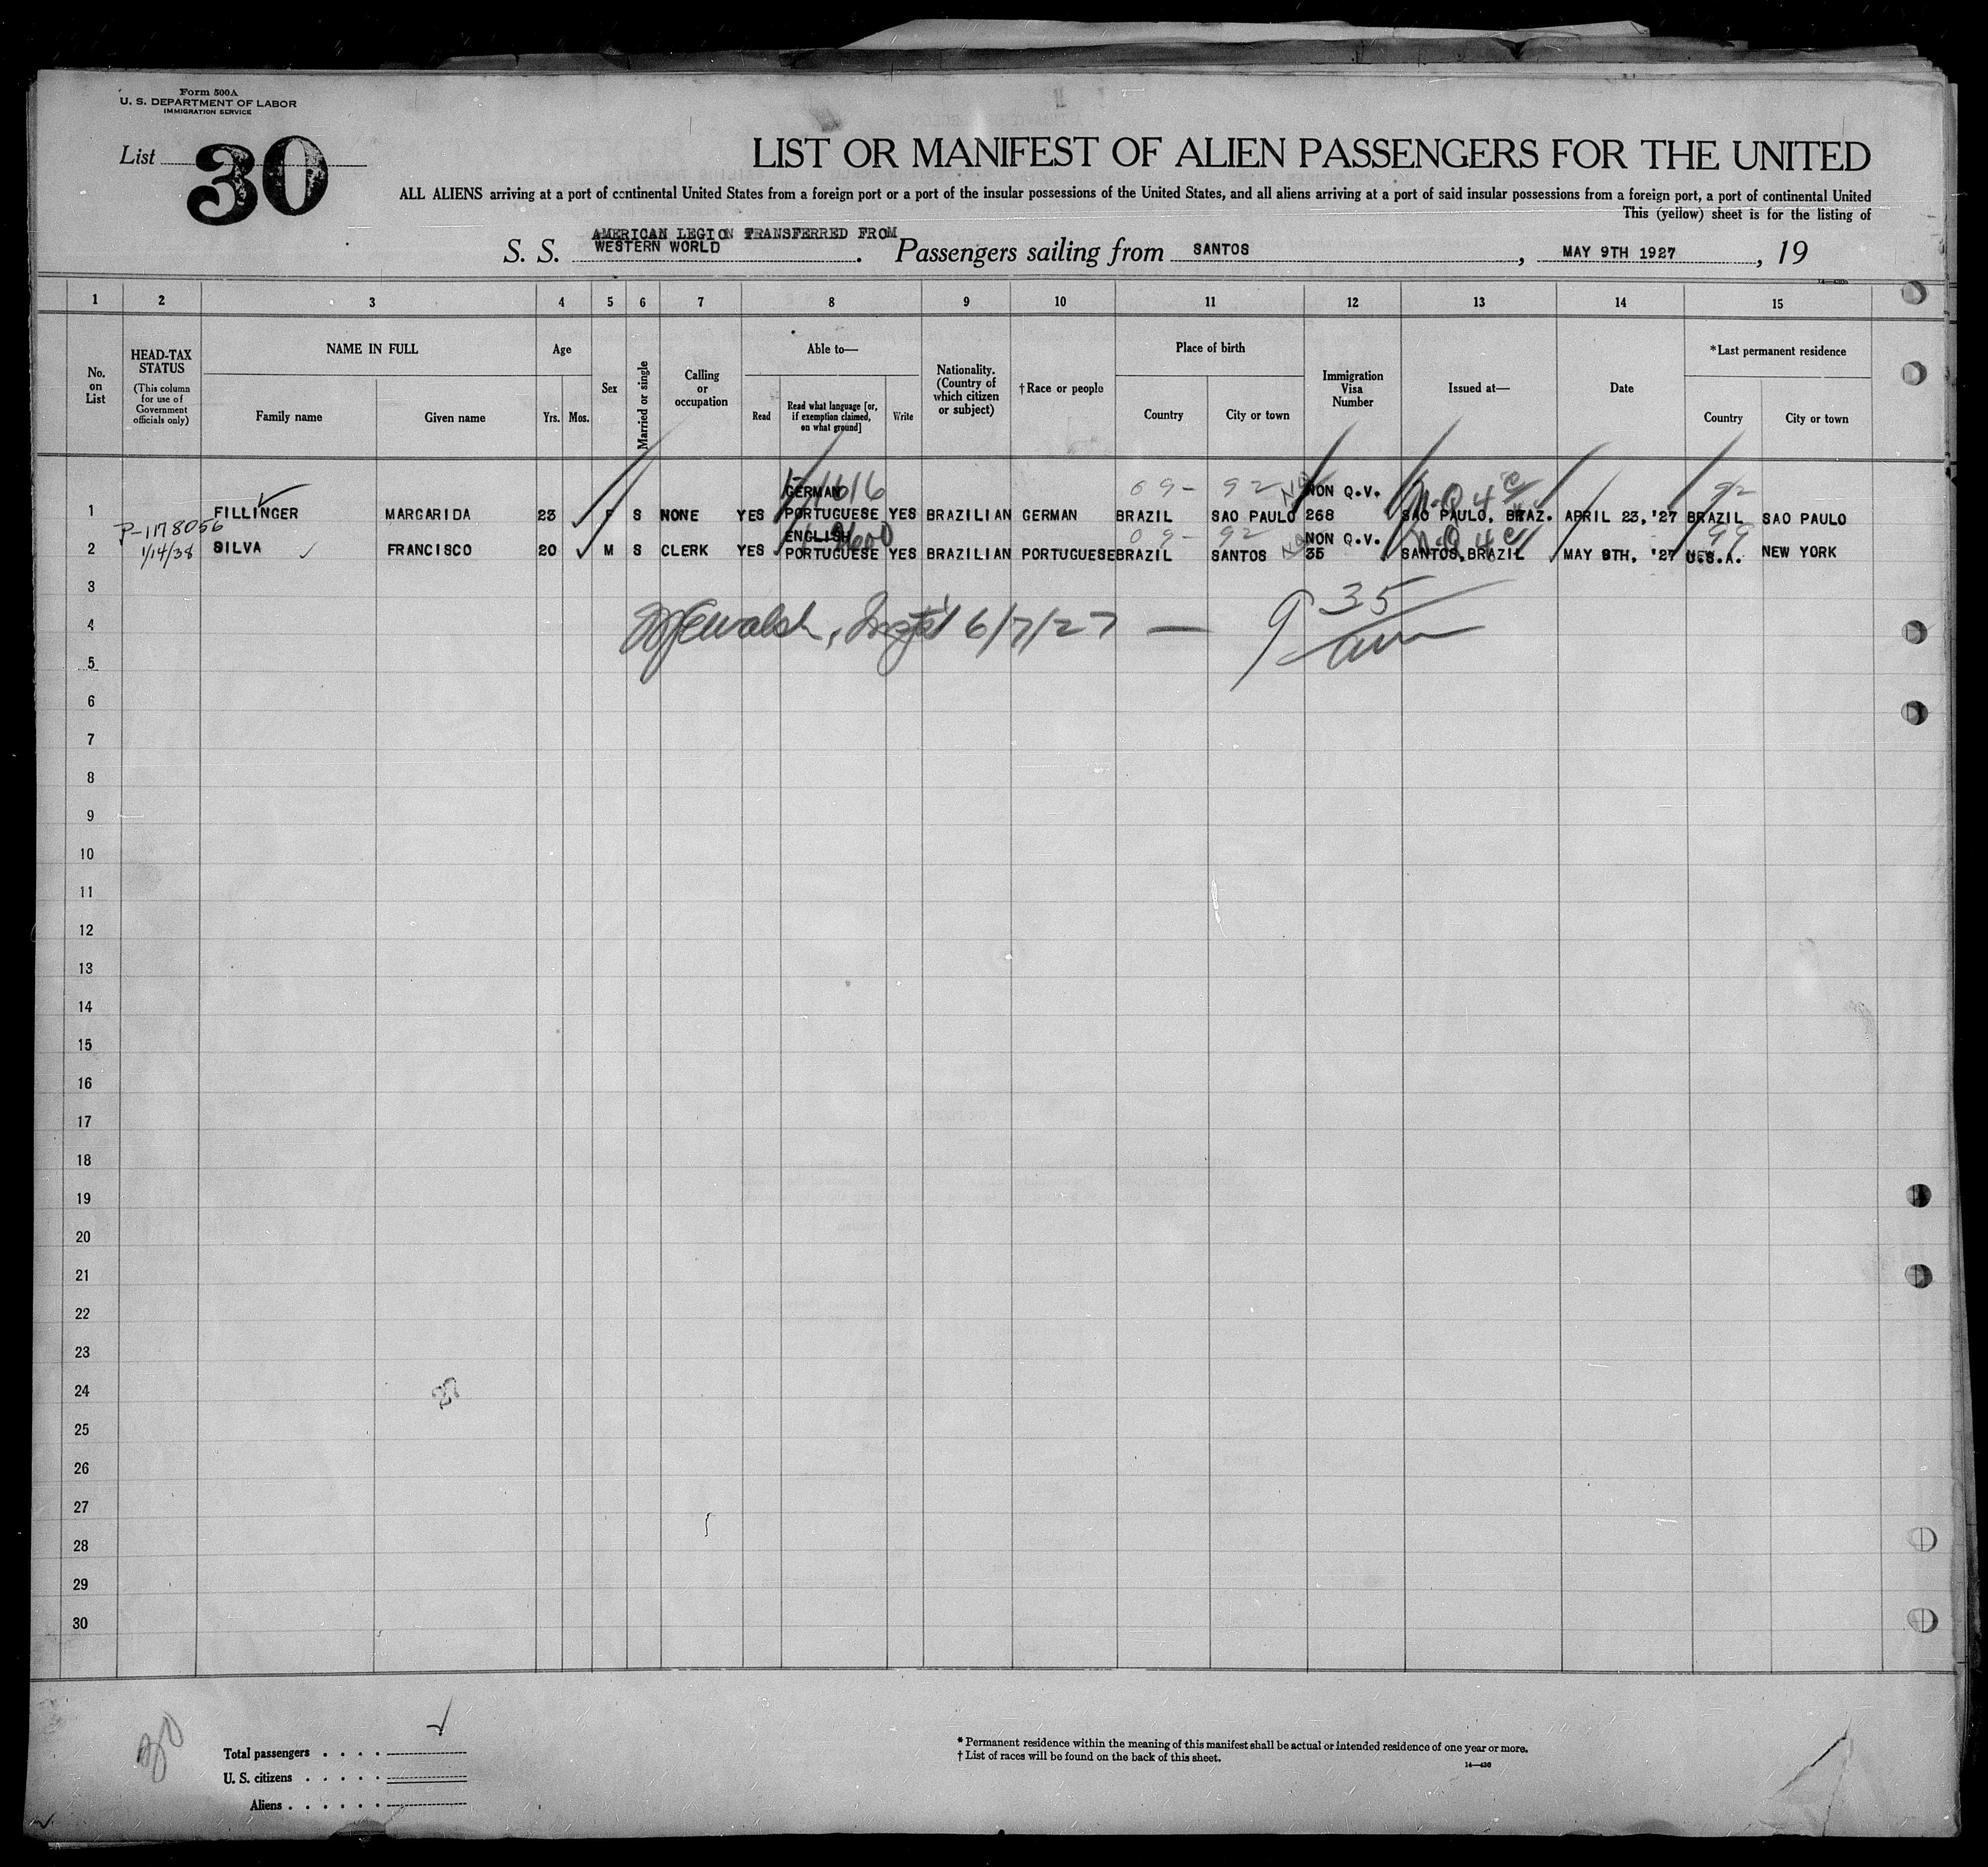 Form 500A
U. S. DEPARTMENT OF LABOR
IMMIGRATION SERVICE
List 30
LIST OR MANIFEST OF ALIEN PASSENGERS FOR THE UNITED
ALL ALIENS arriving at a port of continental United States from a foreign port or a port of the insular possessions of the United States, and all aliens arriving at a port of said insular possessions from a foreign port, a port of continental United
This (yellow) sheet is for the listing of
AMERICAN LEGION TRANSFERRED FROM
S. S. WESTERN WORLD. Passengers sailing from SANTOS, MAY 9TH 1927, 19
1 2 3 4 5 6 7 8 9 10 11 12 13 14 15
No. on List
HEAD-TAX STATUS
(This column for use of Government officials only)
NAME IN FULL
Family name
Given name
Age
Yrs. Mos.
Sex
Married or single
Calling or occupation
Able to—
Read
Read what language [or, if exemption claimed, on what ground]
Write
Nationality. (Country of which citizen or subject)
†Race or people
Place of birth
Country
City or town
Immigration Visa Number
Issued at—
Date
*Last permanent residence
Country
City or town
GERMAN 69- 92 NON Q.V. 92
1 FILLINGER MARGARIDA 23 F S NONE YES PORTUGUESE YES BRAZILIAN GERMAN BRAZIL SAO PAULO 268 SAO PAULO, BRAZ. APRIL 23, '27 BRAZIL SAO PAULO
P-1178056 ENGLISH 09- 92 NON Q.V. 99
2 1/14/38 SILVA FRANCISCO 20 M S CLERK YES PORTUGUESE YES BRAZILIAN PORTUGUESE BRAZIL SANTOS 35 SANTOS, BRAZIL MAY 9TH, '27 U.S.A. NEW YORK
3
4 6/7/27 — 9 35 am
5
6
7
8
9
10
11
12
13
14
15
16
17
18
19
20
21
22
23
24
25
26
27
28
29
30
Total passengers
U. S. citizens
Aliens
* Permanent residence within the meaning of this manifest shall be actual or intended residence of one year or more.
† List of races will be found on the back of this sheet.
14—430